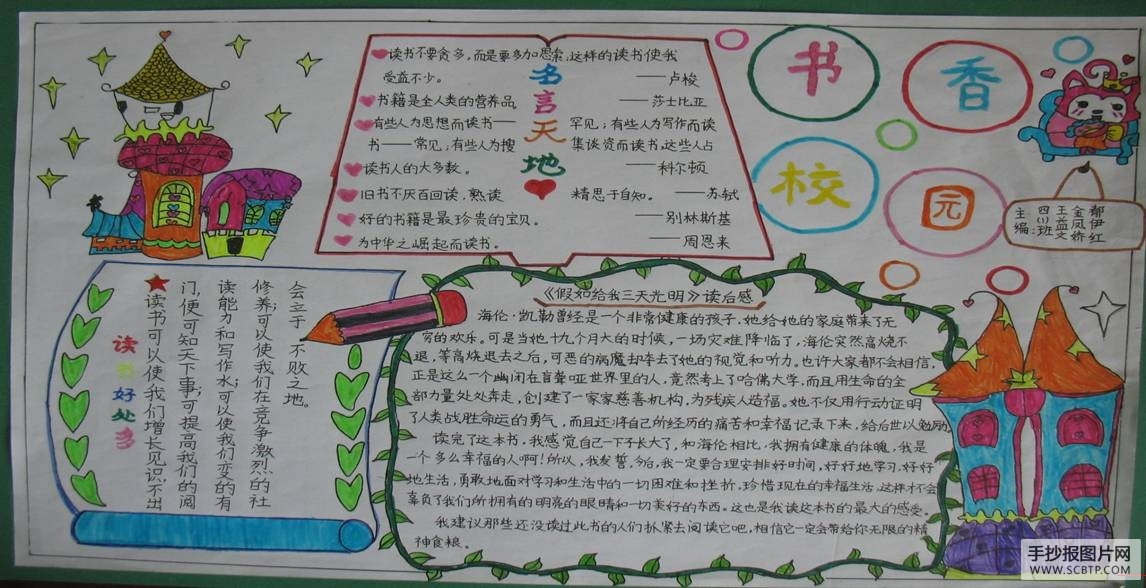 书香
校园
主编：四(1)班 王益文 金凤娇 郁伊红
名言天地
读书不要贪多，而是要多加思索，这样的读书使我
受益不少。——卢梭
书籍是全人类的营养品 ——莎士比亚
有些人为思想而读书—— 罕见；有些人为写作而读
书——常见；有些人为搜 集谈资而读书，这些人占
读书人的大多数。——科尔顿
旧书不厌百回读，熟读 精思于自知。——苏轼
好的书籍是最珍贵的宝贝。——别林斯基
为中华之崛起而读书。——周恩来
读书好处多
读书可以使我们增长见识，不出
门，便可知天下事；可提高我们的阅
读能力和写作水；可以使我们变的有
修养；可以使我们在竞争激烈的社
会立于不败之地。
《假如给我三天光明》读后感
海伦·凯勒曾经是一个非常健康的孩子，她给她的家庭带来了无
穷的欢乐。可是当她十九个月大的时候，一场灾难降临了，海伦突然高烧不
退，等高烧退去之后，可恶的病魔却夺去了她的视觉和听力。也许大家都不会相信，
正是这么一个幽闭在盲聋哑世界里的人，竟然考上了哈佛大学，而且用生命的全
部力量处处奔走，创建了一家家慈善机构，为残疾人造福。她不仅用行动证明
了人类战胜命运的勇气，而且还将自己所经历的痛苦和幸福记录下来，给后世以勉励。
读完了这本书，我感觉自己一下子长大了，和海伦相比，我拥有健康的体魄，我是
一个多么幸福的人啊！所以，我发誓，今后，我一定要合理安排好时间，好好地学习，好好
地生活，勇敢地面对学习和生活中的一切困难和挫折，珍惜现在的幸福生活。这样才不会
辜负了我们所拥有的明亮的眼睛和一切美好的东西。这也是我读这本书的最大的感受。
我建议那些还没读过此书的人们赶紧去阅读它吧，相信它一定会带给你无限的精
神食粮。
手抄报图片网
WWW.SCBTP.COM